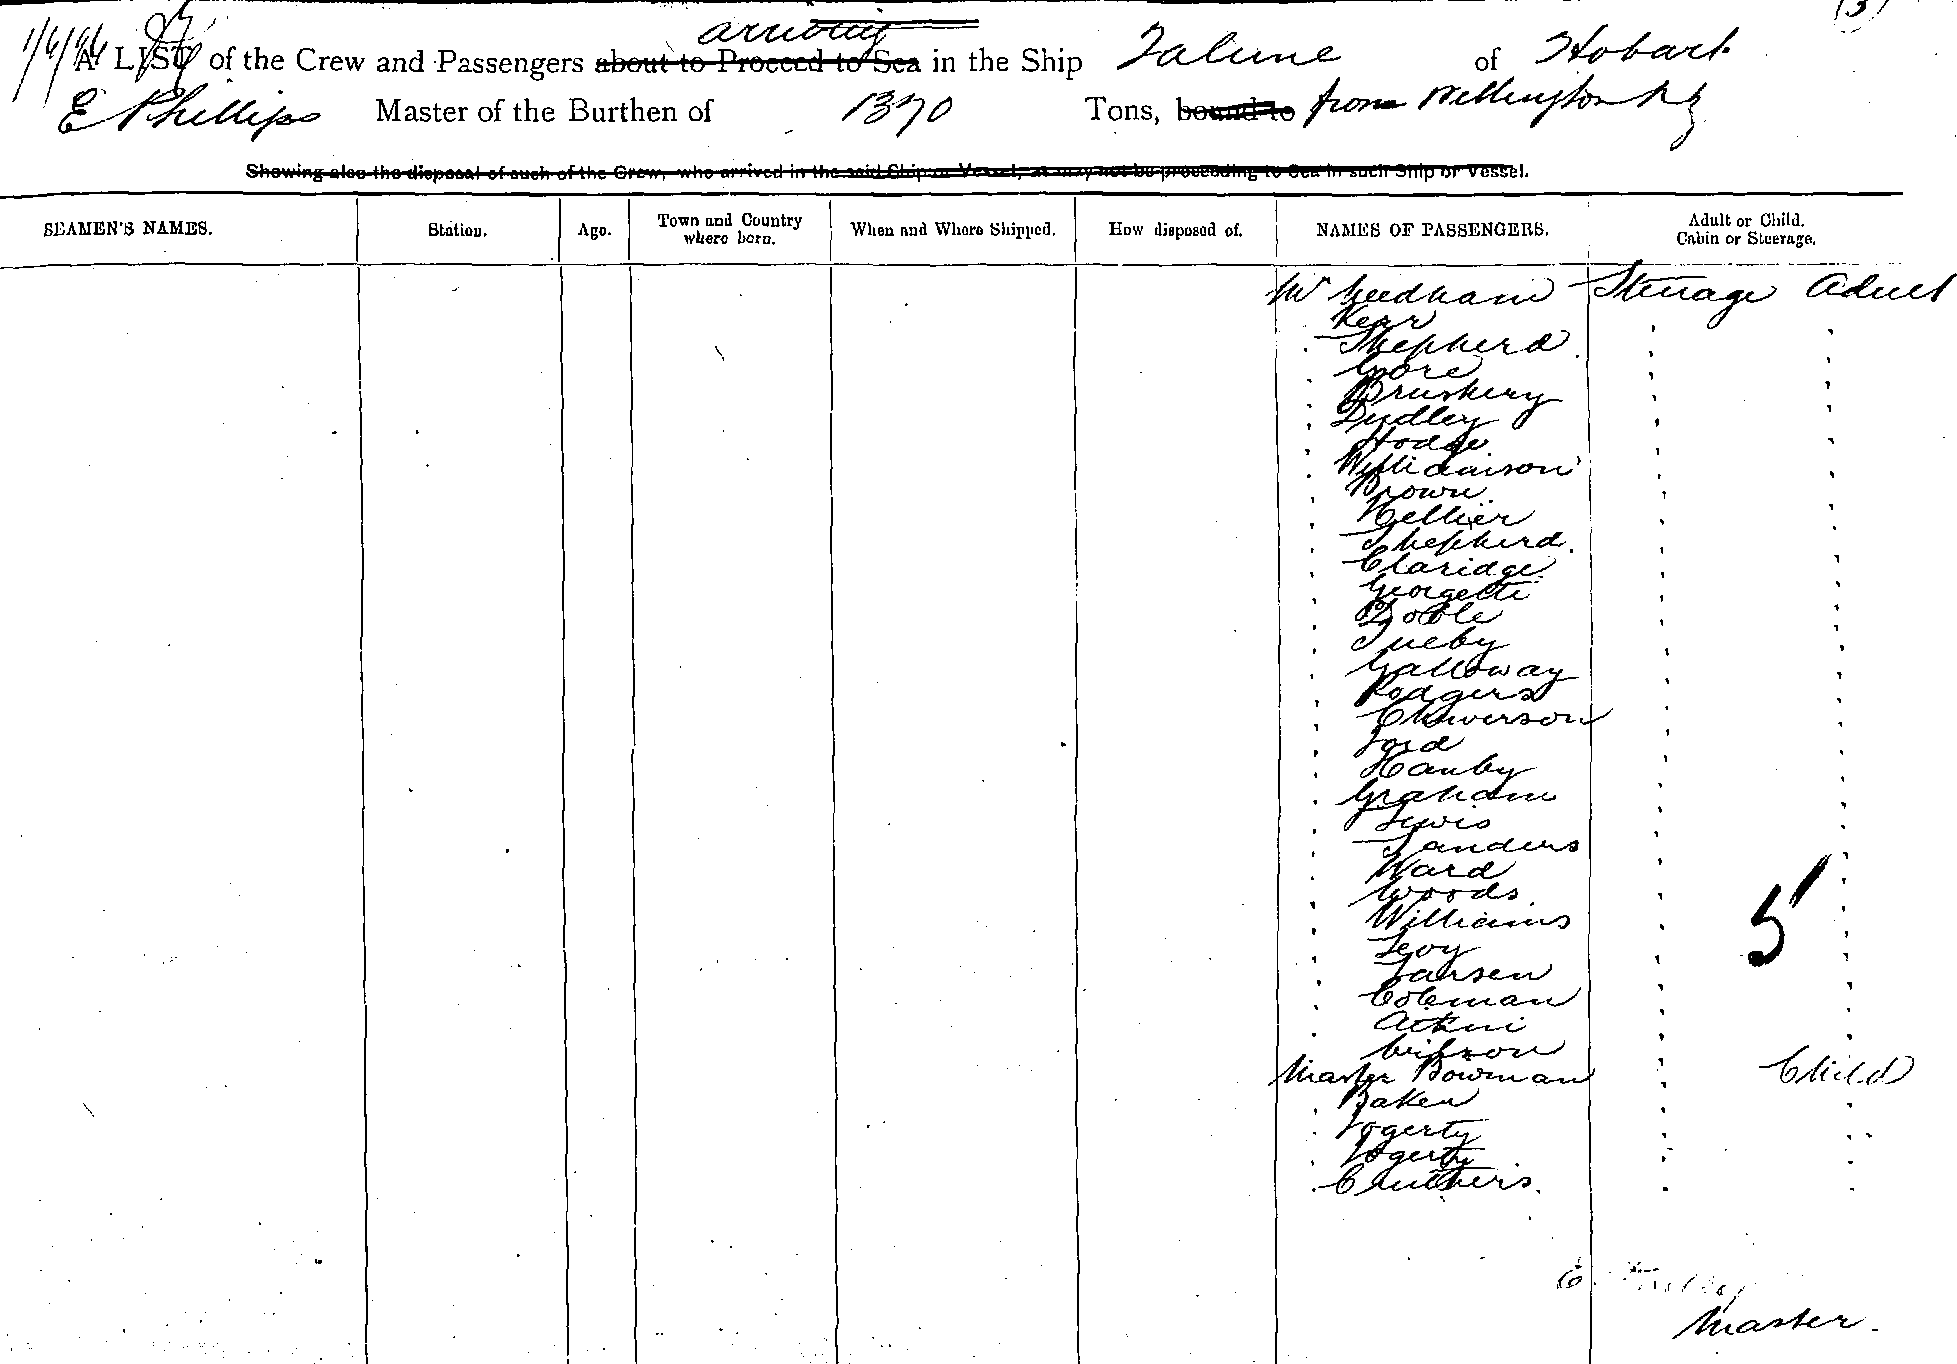 (3)
1/6/96
arriving
A LIST of the Crew and Passengers about to Proceed to Sea in the Ship Talune of Hobart
E Phillips Master of the Burthen of 1370 Tons, bound to from Wellington NZ
Showing also the disposal of such of the Crew, who arrived in the said Ship or Vessel, as may not be proceeding to Sea in such Ship or Vessel.
SEAMEN'S NAMES. Station. Age. Town and Country where born. When and Where Shipped. How disposed of. NAMES OF PASSENGERS. Adult or Child. Cabin or Steerage.
Mr Needham Steerage Adult
Kerr
Shepherd
Gore
Dudley
Hodge
Williamson
Brown
Hellier
Shepherd
Claridge
Georgetti
Tueby
Galloway
Rodgers
Ford
Hanby
Graham
Lewis
Sanders
Ward
Woods
Williams
Levy
Larsen
Coleman
5
Master Bowman Child
Baker
Fogerty
Fogerty
Cruthers
E. Phillips
Master.